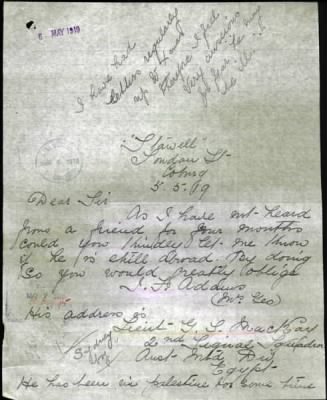 6 MAY 1919
I have had
letters regularly
up to & and
therefore I feel
very anxious
for fear he may
be ill.
"Stawell"
Street
Coburg
5.5.19
Dear Sir
As I have not heard
from a friend for four months
could you kindley let me know
if he is still abroad. By doing
so you would greatly oblige
(Mrs Geo)
His address is
Lieut G. S. MacKay
2nd Signal Squadron
Aust Mtd Div
Egypt
He has been in palestine for some time